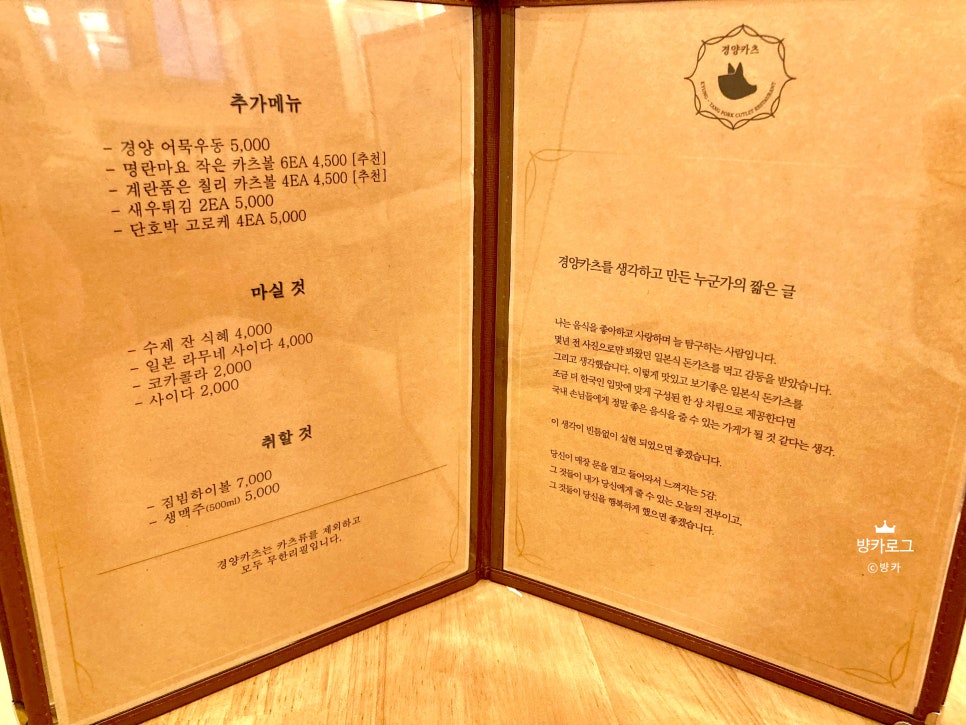 추가메뉴
- 경양 어묵우동 5,000
- 명란마요 작은 카츠볼 6EA 4,500 [추천]
- 계란품은 칠리 카츠볼 4EA 4,500 [추천]
- 새우튀김 2EA 5,000
- 단호박 고로케 4EA 5,000
마실 것
- 수제 잔 식혜 4,000
- 일본 라무네 사이다 4,000
- 코카콜라 2,000
- 사이다 2,000
취할 것
- 짐빔하이볼 7,000
- 생맥주(500ml) 5,000
경양카츠는 카츠류를 제외하고
모두 무한리필입니다.
경양카츠
KYUNG-YANG PORK CUTLET RESTAURANT
경양카츠를 생각하고 만든 누군가의 짧은 글
나는 음식을 좋아하고 사랑하며 늘 탐구하는 사람입니다.
몇년 전 사진으로만 봐왔던 일본식 돈카츠를 먹고 감동을 받았습니다.
그리고 생각했습니다. 이렇게 맛있고 보기좋은 일본식 돈카츠를
조금 더 한국인 입맛에 맞게 구성된 한 상 차림으로 제공한다면
국내 손님들에게 정말 좋은 음식을 줄 수 있는 가게가 될 것 같다는 생각.
이 생각이 빈틈없이 실현 되었으면 좋겠습니다.
당신이 매장 문을 열고 들어와서 느껴지는 5감.
그 것들이 내가 당신에게 줄 수 있는 오늘의 전부이고,
그 것들이 당신을 행복하게 했으면 좋겠습니다.
뱡카로그
©뱡카